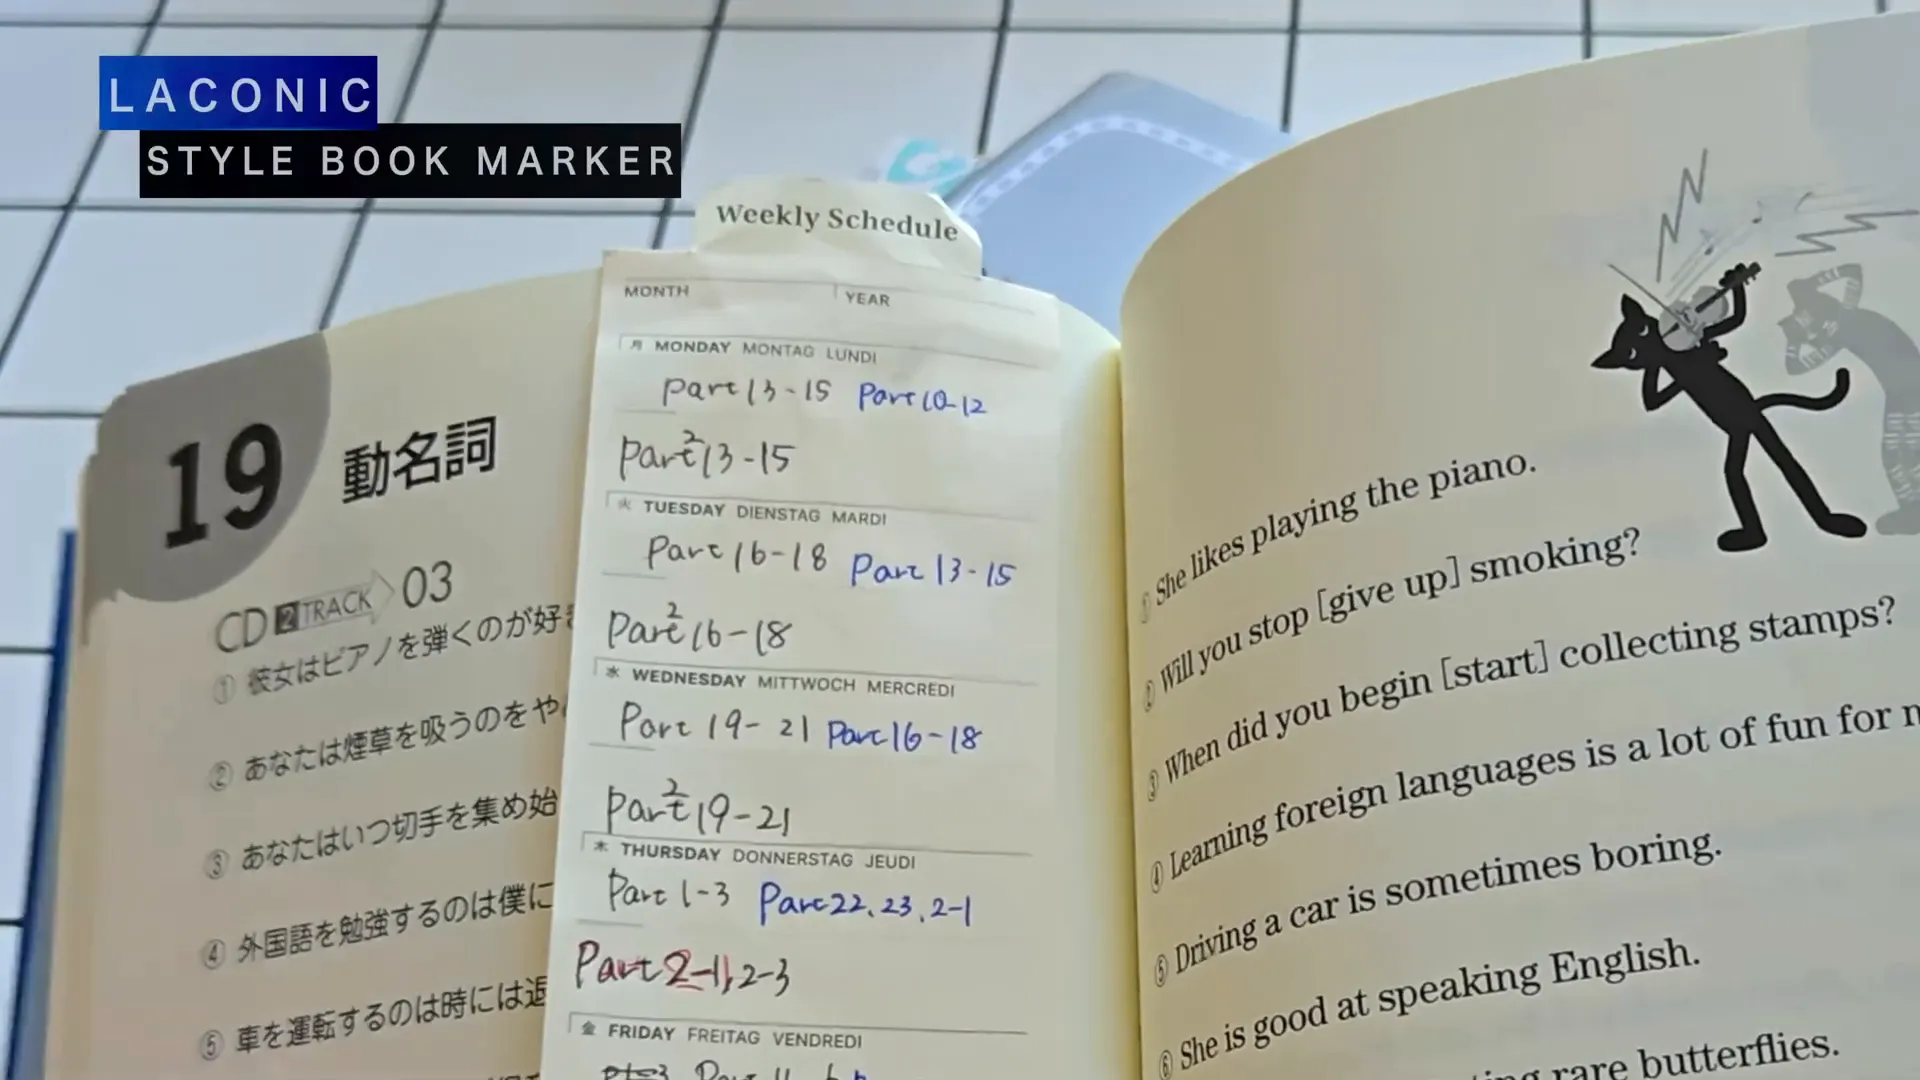 LACONIC
STYLE BOOK MARKER
Weekly Schedule
MONTH YEAR
月 MONDAY MONTAG LUNDI
Part 13-15 Part 10-12
Part2 13-15
火 TUESDAY DIENSTAG MARDI
Part 16-18 Part 13-15
Part2 16-18
水 WEDNESDAY MITTWOCH MERCREDI
Part 19-21 Part 16-18
Part2 19-21
木 THURSDAY DONNERSTAG JEUDI
Part 1-3 Part 22, 23, 2-1
Part 2-1, 2-3
金 FRIDAY FREITAG VENDREDI
19 動名詞
CD 2 TRACK 03
① 彼女はピアノを弾くのが好き
② あなたは煙草を吸うのをや
③ あなたはいつ切手を集め始
④ 外国語を勉強するのは僕に
⑤ 車を運転するのは時には退
① She likes playing the piano.
② Will you stop [give up] smoking?
③ When did you begin [start] collecting stamps?
④ Learning foreign languages is a lot of fun for
⑤ Driving a car is sometimes boring.
⑥ She is good at speaking English.
rare butterflies.